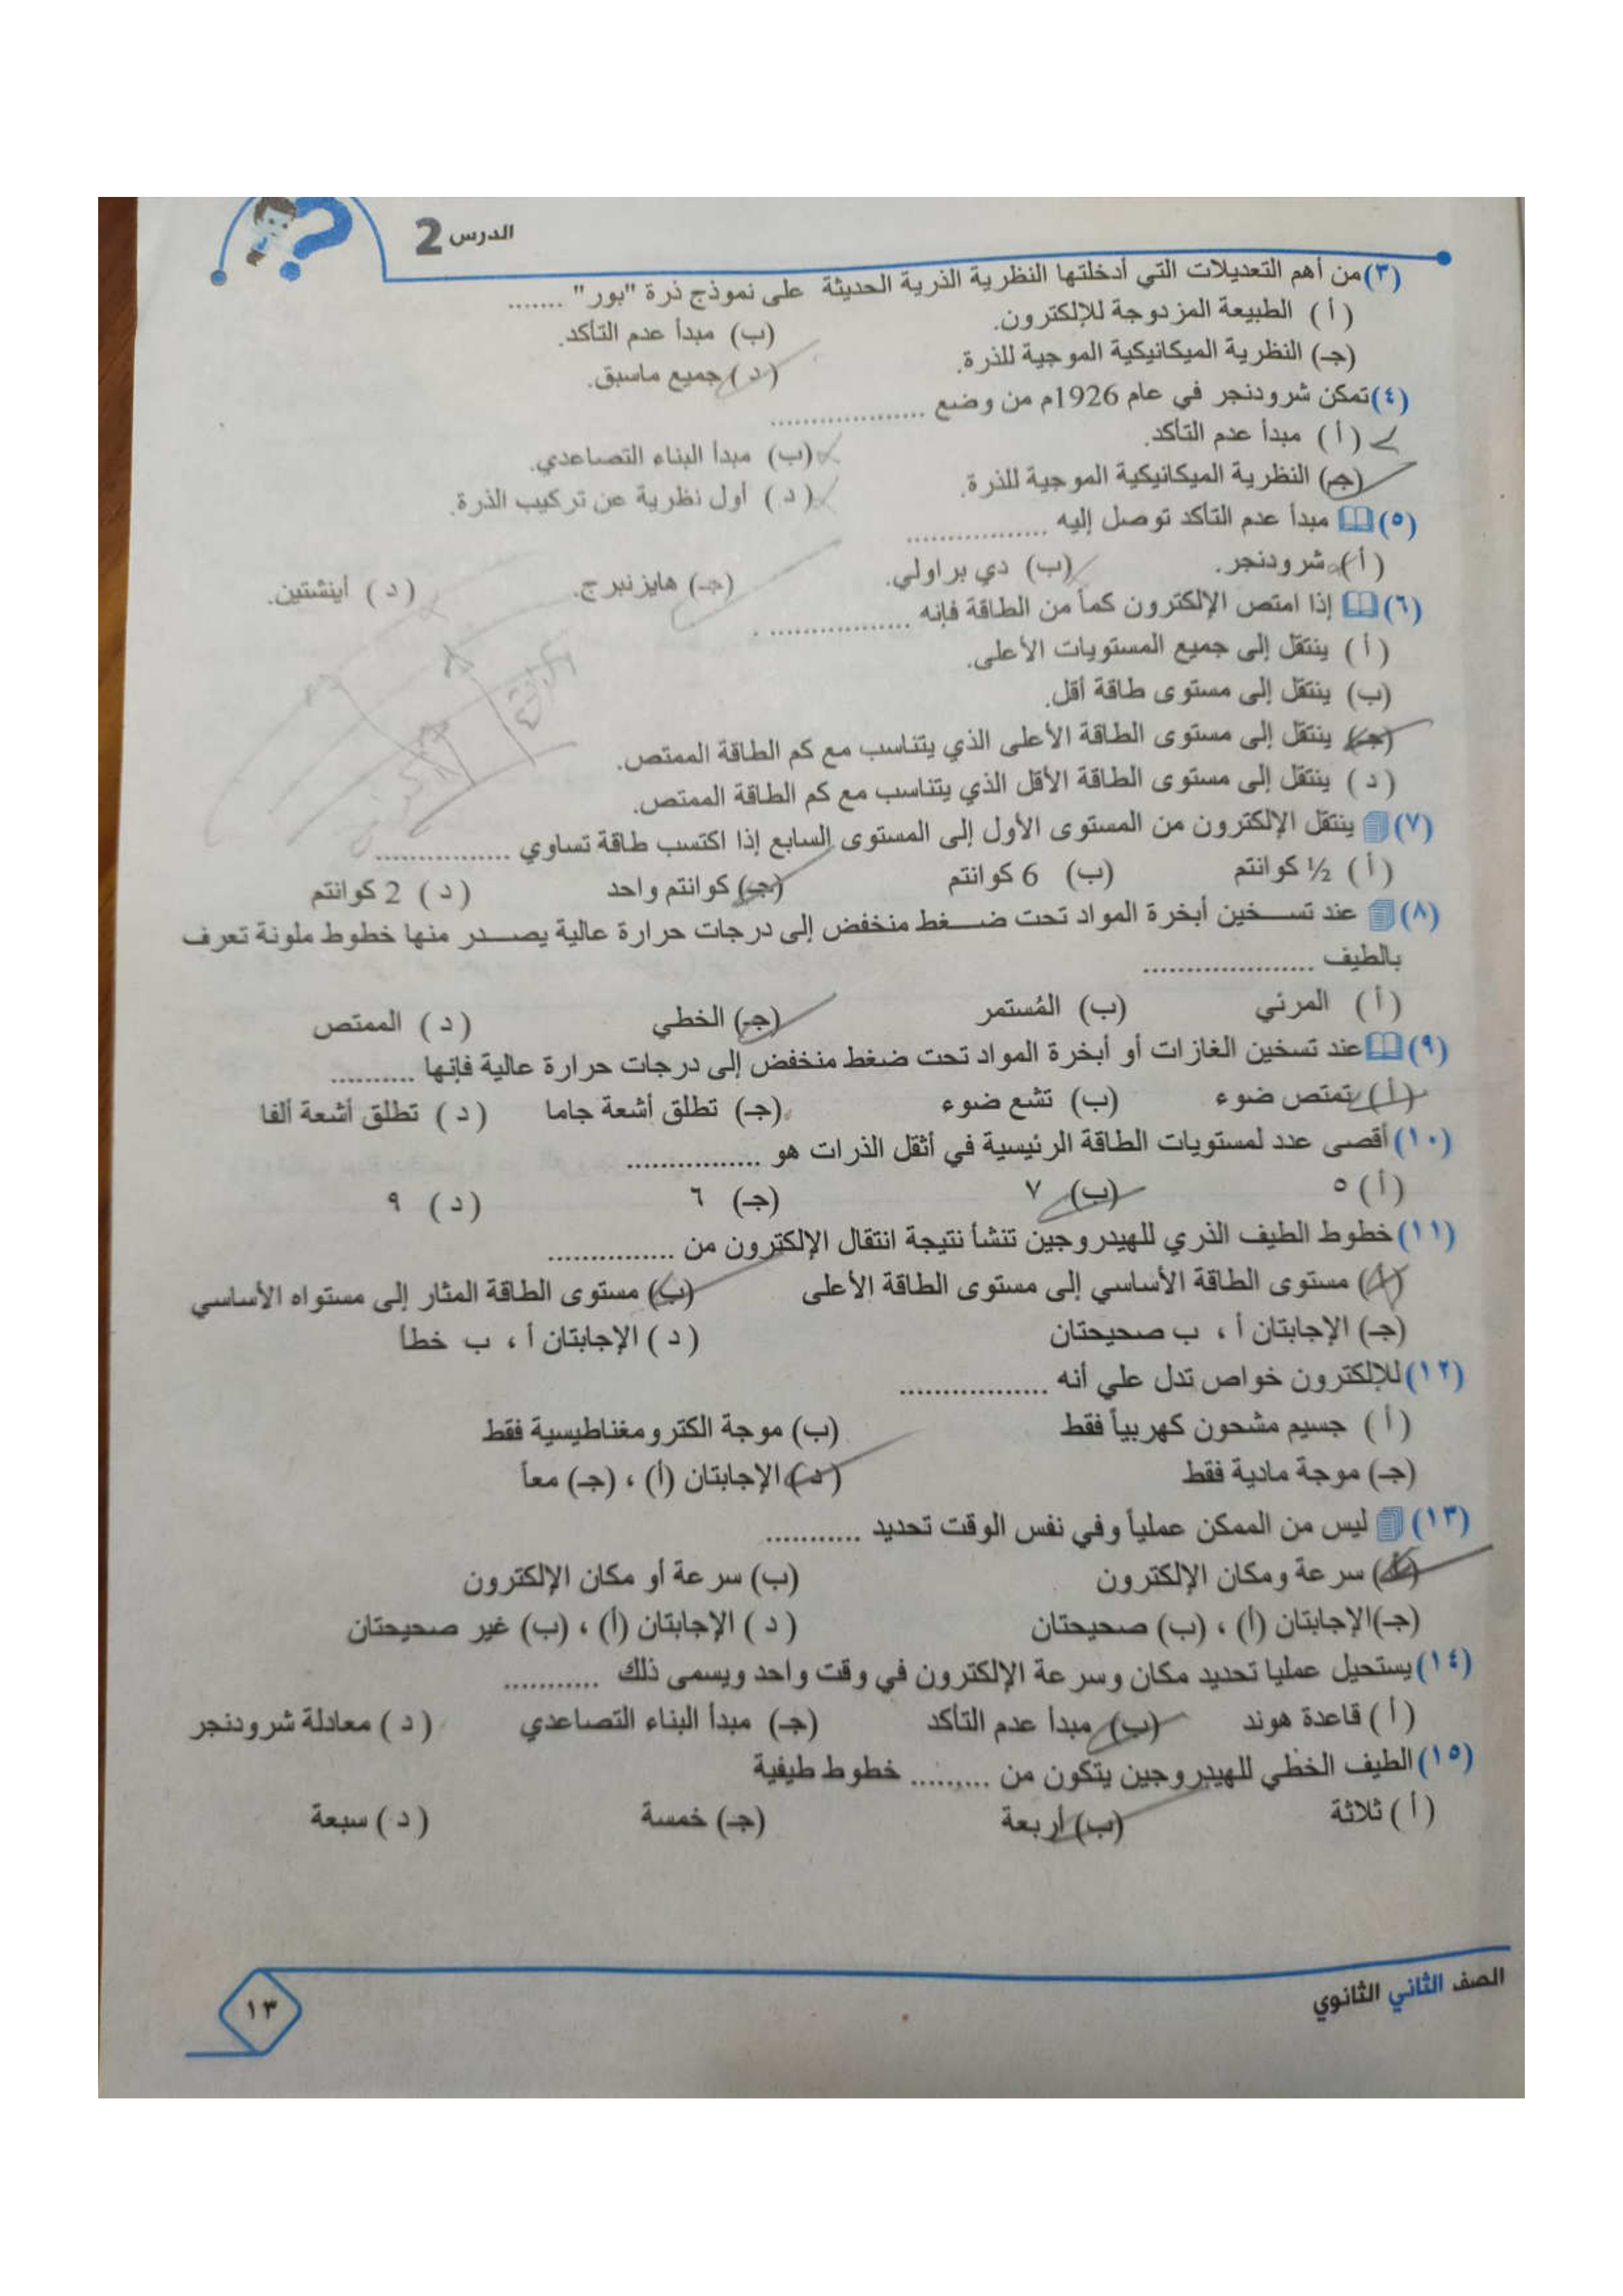 الدرس 2
(٣) من أهم التعديلات التي أدخلتها النظرية الذرية الحديثة على نموذج ذرة "بور" .......
(أ) الطبيعة المزدوجة للإلكترون.
(ب) مبدأ عدم التأكد.
(جـ) النظرية الميكانيكية الموجية للذرة.
(د) جميع ماسبق.
(٤) تمكن شرودنجر في عام 1926م من وضع ..................
(أ) مبدأ عدم التأكد.
(ب) مبدأ البناء التصاعدي.
(جـ) النظرية الميكانيكية الموجية للذرة.
(د) أول نظرية عن تركيب الذرة.
(٥) مبدأ عدم التأكد توصل إليه .................
(أ) شرودنجر. (ب) دي براولي. (جـ) هايزنبرج. (د) أينشتين.
(٦) إذا امتص الإلكترون كماً من الطاقة فإنه ................. .
(أ) ينتقل إلى جميع المستويات الأعلى.
(ب) ينتقل إلى مستوى طاقة أقل.
(جـ) ينتقل إلى مستوى الطاقة الأعلى الذي يتناسب مع كم الطاقة الممتص.
(د) ينتقل إلى مستوى الطاقة الأقل الذي يتناسب مع كم الطاقة الممتص.
(٧) ينتقل الإلكترون من المستوى الأول إلى المستوى السابع إذا اكتسب طاقة تساوي ................
(أ) ½ كوانتم (ب) 6 كوانتم (جـ) كوانتم واحد (د) 2 كوانتم
(٨) عند تســخين أبخرة المواد تحت ضــغط منخفض إلى درجات حرارة عالية يصــدر منها خطوط ملونة تعرف
بالطيف ....................
(أ) المرئي (ب) المُستمر (جـ) الخطي (د) الممتص
(٩) عند تسخين الغازات أو أبخرة المواد تحت ضغط منخفض إلى درجات حرارة عالية فإنها ..........
(أ) تمتص ضوء (ب) تشع ضوء (جـ) تطلق أشعة جاما (د) تطلق أشعة ألفا
(١٠) أقصى عدد لمستويات الطاقة الرئيسية في أثقل الذرات هو ................
(أ) ٥ (ب) ٧ (جـ) ٦ (د) ٩
(١١) خطوط الطيف الذري للهيدروجين تنشأ نتيجة انتقال الإلكترون من ...............
(أ) مستوى الطاقة الأساسي إلى مستوى الطاقة الأعلى (ب) مستوى الطاقة المثار إلى مستواه الأساسي
(جـ) الإجابتان أ ، ب صحيحتان (د) الإجابتان أ ، ب خطأ
(١٢) للإلكترون خواص تدل علي أنه .................
(أ) جسيم مشحون كهربياً فقط (ب) موجة الكترومغناطيسية فقط
(جـ) موجة مادية فقط (د) الإجابتان (أ) ، (جـ) معاً
(١٣) ليس من الممكن عملياً وفي نفس الوقت تحديد ...........
(أ) سرعة ومكان الإلكترون (ب) سرعة أو مكان الإلكترون
(جـ) الإجابتان (أ) ، (ب) صحيحتان (د) الإجابتان (أ) ، (ب) غير صحيحتان
(١٤) يستحيل عمليا تحديد مكان وسرعة الإلكترون في وقت واحد ويسمى ذلك ...........
(أ) قاعدة هوند (ب) مبدأ عدم التأكد (جـ) مبدأ البناء التصاعدي (د) معادلة شرودنجر
(١٥) الطيف الخطي للهيدروجين يتكون من ......... خطوط طيفية
(أ) ثلاثة (ب) أربعة (جـ) خمسة (د) سبعة
الصف الثاني الثانوي
١٣